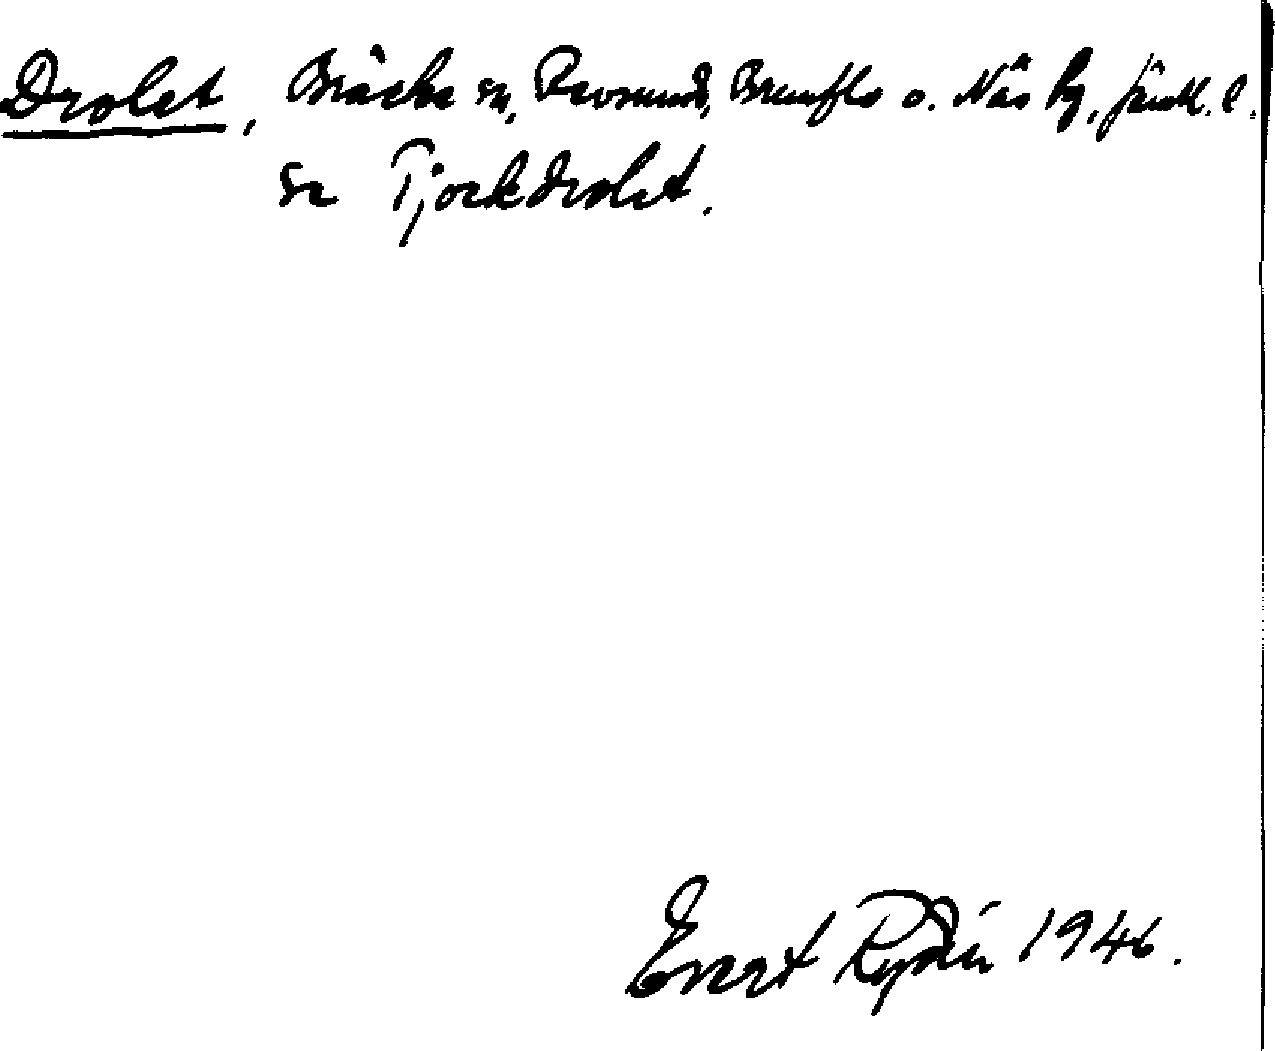 Drolet, Bräcke sn, Revsunds, Brunflo o. Näs tg, Jämtl. l.
se Tjockdrolet.
Evert Rydén 1946.